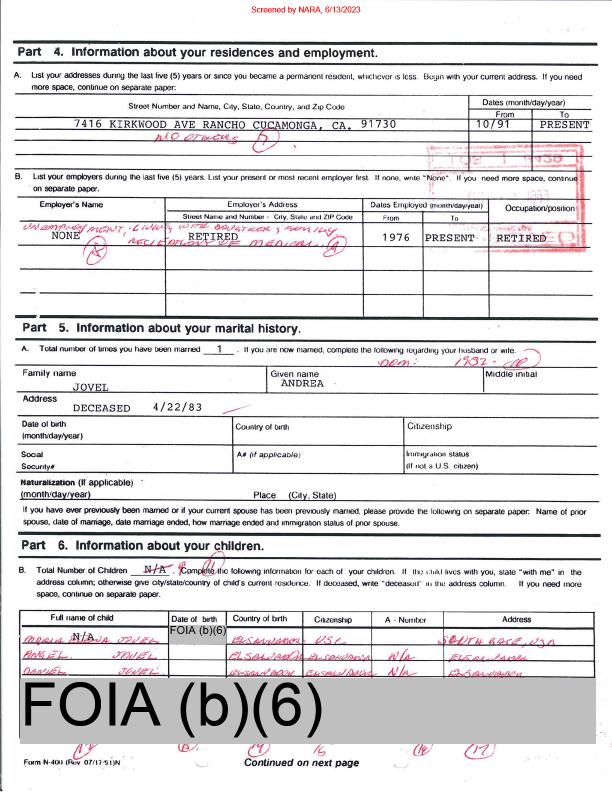 Screened by NARA, 6/13/2023
Part 4. Information about your residences and employment.
A. List your addresses during the last five (5) years or since you became a permanent resident, whichever is less. Begin with your current address. If you need
more space, continue on separate paper:
Street Number and Name, City, State, Country, and Zip Code
Dates (month/day/year)
From To
7416 KIRKWOOD AVE RANCHO CUCAMONGA, CA. 91730 10/91 PRESENT
NO OTHERS
B. List your employers during the last five (5) years. List your present or most recent employer first. If none, write "None". If you need more space, continue
on separate paper.
Employer's Name Employer's Address Dates Employed (month/day/year) Occupation/position
Street Name and Number - City, State and ZIP Code From To
UNEMPLOYMENT, LIVING WITH DAUGHTER, FAMILY
NONE RETIRED 1976 PRESENT RETIRED
OF MEDICAL
Part 5. Information about your marital history.
A. Total number of times you have been married 1 . If you are now married, complete the following regarding your husband or wife.
DOM: 1932
Family name Given name Middle initial
JOVEL ANDREA
Address
DECEASED 4/22/83
Date of birth Country of birth Citizenship
(month/day/year)
Social A# (if applicable) Immigration status
Security# (If not a U.S. citizen)
Naturalization (If applicable)
(month/day/year) Place (City, State)
If you have ever previously been married or if your current spouse has been previously married, please provide the following on separate paper: Name of prior
spouse, date of marriage, date marriage ended, how marriage ended and immigration status of prior spouse.
Part 6. Information about your children.
B. Total Number of Children N/A . Complete the following information for each of your children. If the child lives with you, state "with me" in the
address column; otherwise give city/state/country of child's current residence. If deceased, write "deceased" in the address column. If you need more
space, continue on separate paper.
Full name of child Date of birth Country of birth Citizenship A - Number Address
N/A FOIA (b)(6)
MARIA JOVEL ELSALVADOR USC SOUTH GATE, USA
ANGEL JOVEL ELSALVADOR N/A
JOVEL ELSALVADOR N/A ELSALVADOR
FOIA (b)(6)
12 13 14 15 16 17
Form N-400 (Rev 07/17/91)N Continued on next page